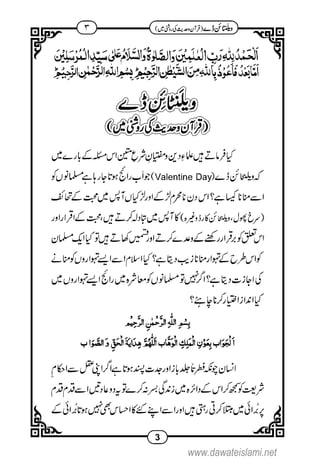 ۳ ویلنٹائن ڈے (قرآن وحدیث کی روشنی میں)
اَلْحَمْدُ لِلّٰہِ رَبِّ الْعٰلَمِیْنَ وَالصَّلٰوۃُ وَالسَّلَامُ عَلٰی سَیِّدِ الْمُرْسَلِیْنَ
اَمَّا بَعْدُ فَاَعُوْذُ بِاللّٰہِ مِنَ الشَّیْطٰنِ الرَّجِیْمِ بِسْمِ اللّٰہِ الرَّحْمٰنِ الرَّحِیْمِ
ویلنٹائن ڈے
(قرآن وحدیث کی روشنی میں)
کیا فرماتے ہیں علماءِ دین ومفتیانِ شرعِ متین اس مسئلہ کے بارے میں
کہ ویلنٹائن ڈے (Valentine Day) جو اب رائج ہوتا جا رہا ہے مسلمانوں کو
اسے منانا کیسا ہے؟ اس دن نامحرم لڑکے اور لڑکیاں آپس میں محبت کے تحائف
(سرخ پھول، ویلنٹائن کارڈ وغیرہ) کا آپس میں تبادلہ کرتے ہیں، محبت کا اقرار اور
اس تعلق کو برقرار رکھنے کے وعدے کرتے اور قسمیں کھاتے ہیں تو کیا ایک مسلمان
کو اس طرح کے تہوار منانا زیب دیتا ہے؟ کیا اسلام اسے ایسے تہواروں کو منانے
کی اجازت دیتا ہے؟ اگر نہیں تو مسلمانوں کو معاشرہ میں رائج ایسے تہواروں میں
کیا انداز اختیار کرنا چاہئے؟
بِسْمِ اللّٰہِ الرَّحْمٰنِ الرَّحِیْمِ
اَلْجَوَابُ بِعَوْنِ الْمَلِکِ الْوَھَّابِ اَللّٰھُمَّ ھِدَایَۃَ الْحَقِّ وَ الصَّوَابِ
انسان چونکہ فطرتاً جلد باز اور جدت پسند ہوتا ہے اگر اپنی عقل سے احکامِ
شریعت کو سمجھ کر اس کے دائرہ میں زندگی بسر نہ کرے تو یہ دو عادتیں اسے قدم قدم
پر برائی میں مبتلا کرتی رہتی ہیں اور اسے اپنے کئے کا احساس بھی نہیں ہوتا برائی کے
3
www.dawateislami.net